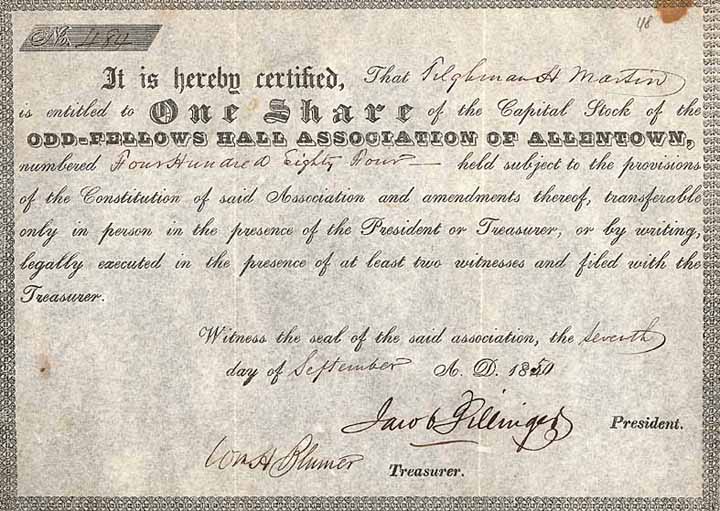 48
No. 484
It is hereby certified, That Tilghman H Martin
is entitled to One Share of the Capital Stock of the
ODD-FELLOWS HALL ASSOCIATION OF ALLENTOWN,
numbered Four Hundred Eighty Four held subject to the provisions
of the Constitution of said Association and amendments thereof, transferable
only in person in the presence of the President or Treasurer, or by writing,
legally executed in the presence of at least two witnesses and filed with the
Treasurer.
Witness the seal of the said association, the Seventh
day of September A. D. 1850
Jacob Dillinger President.
Wm H Blumer Treasurer.